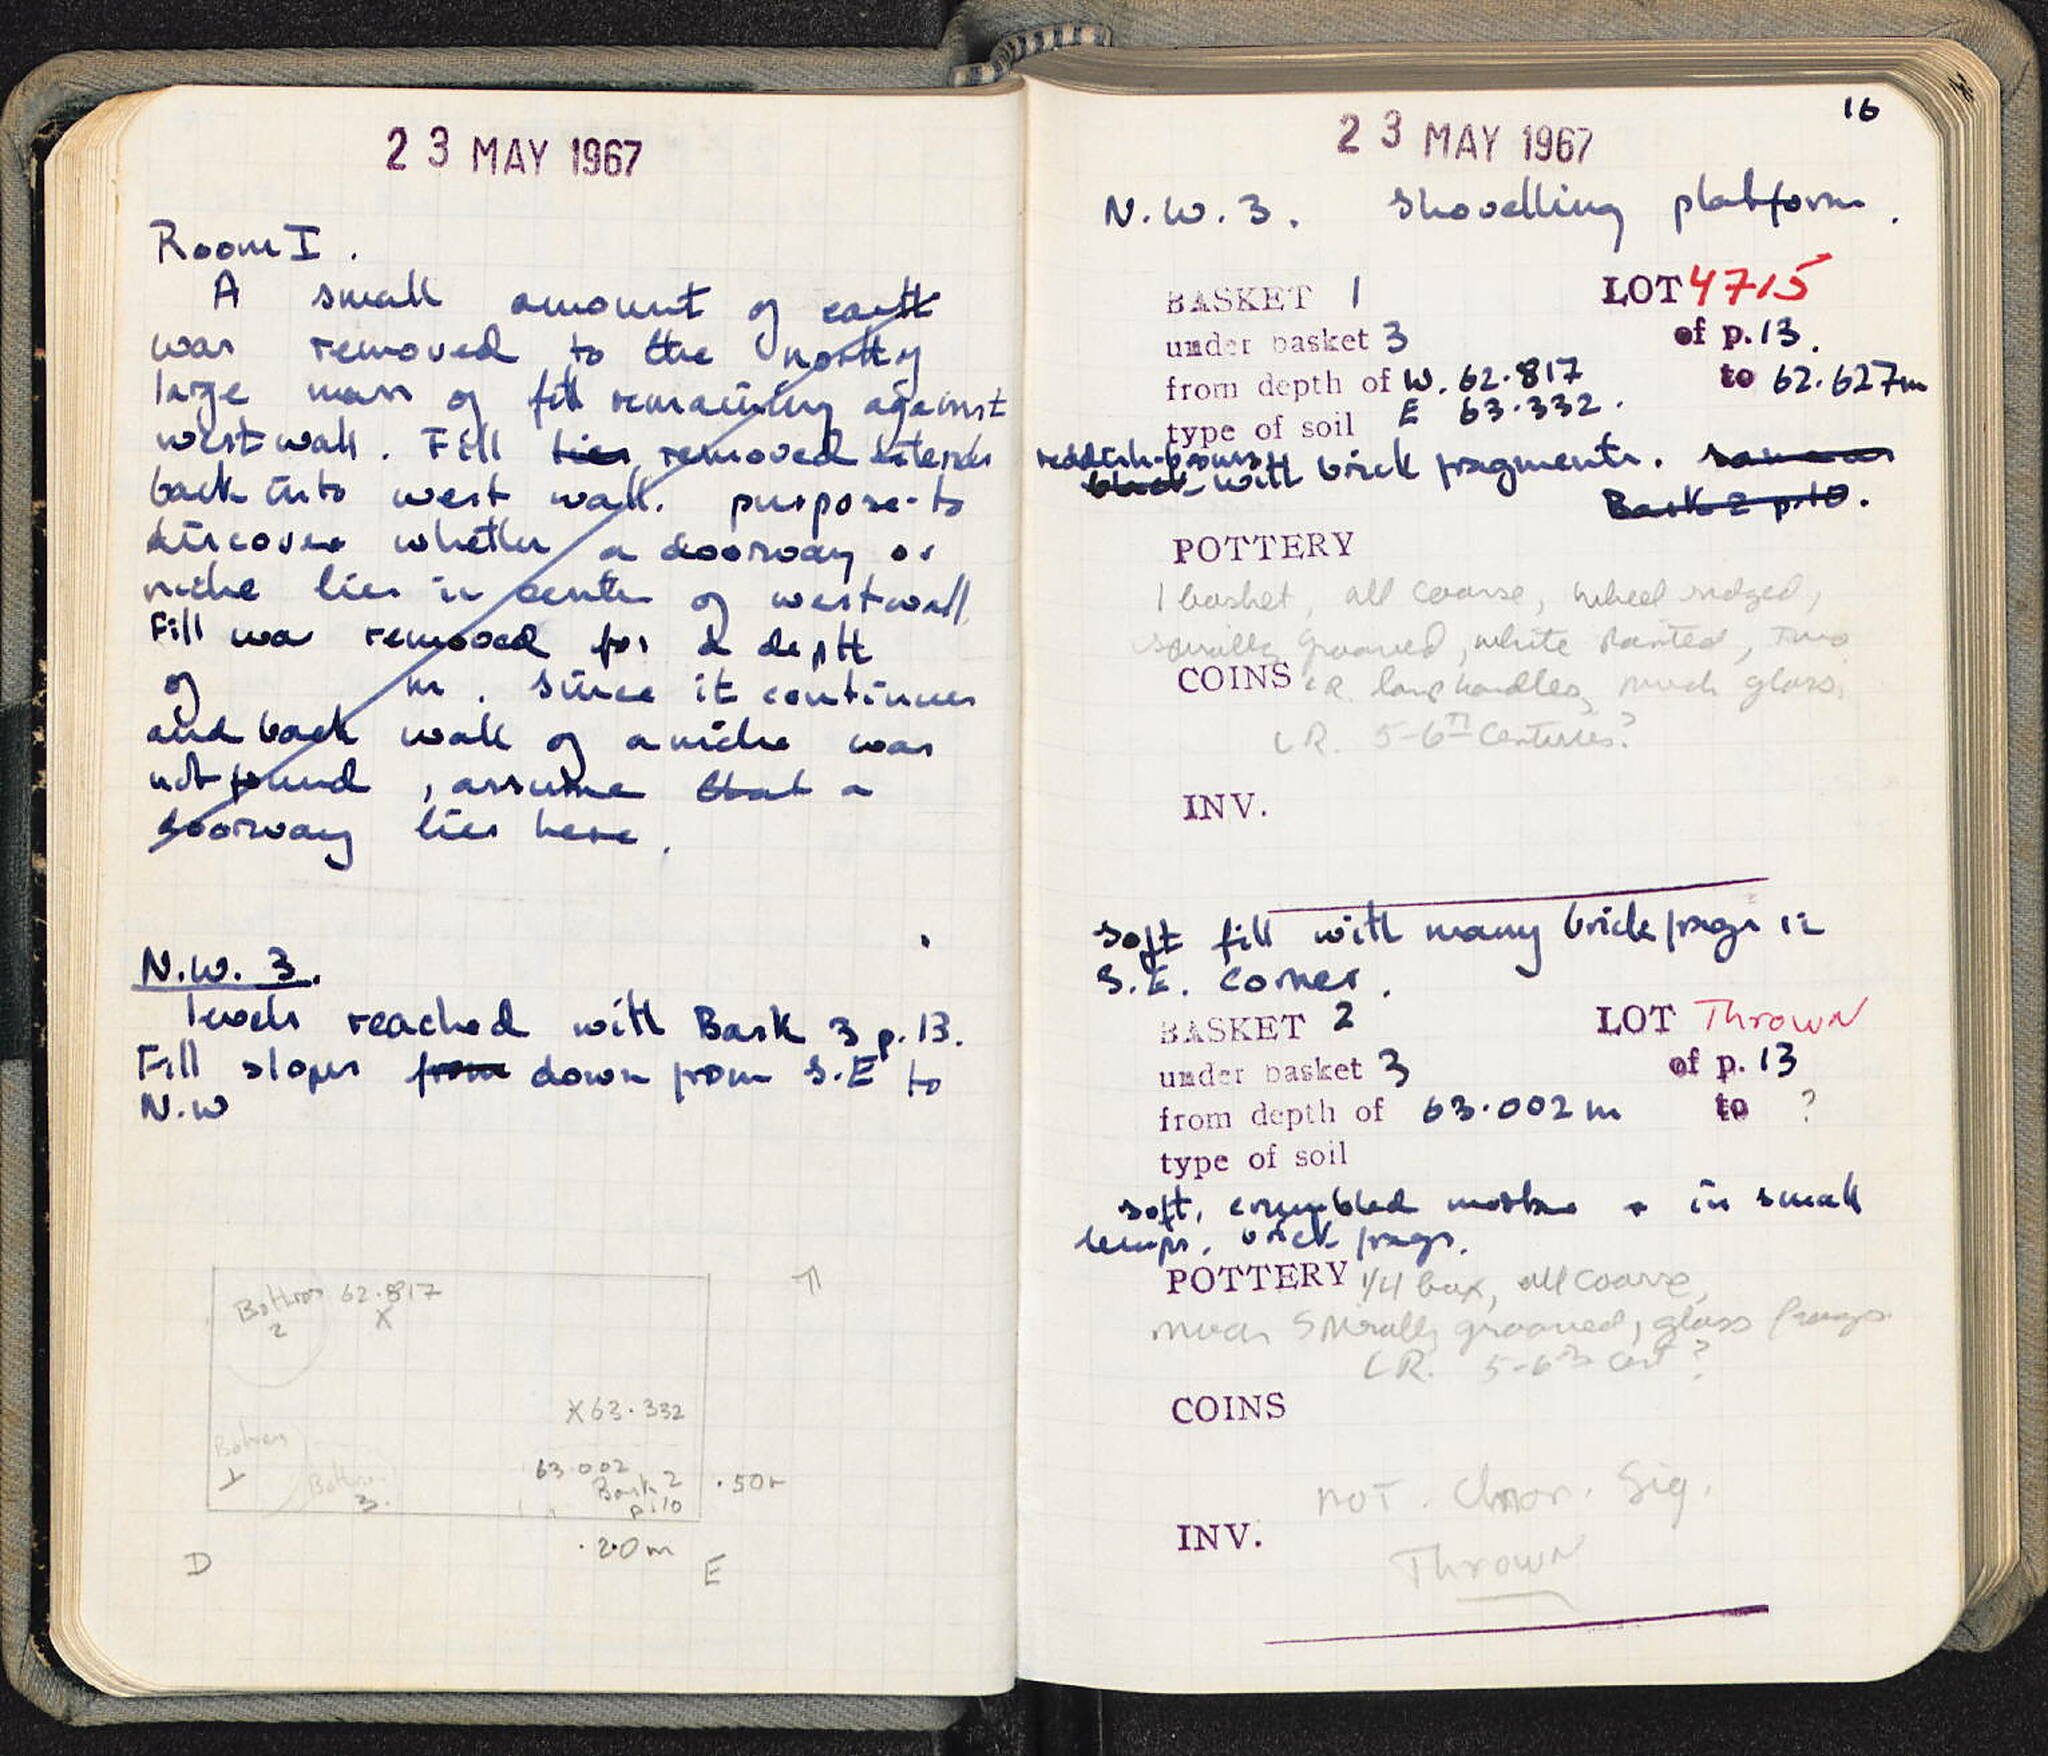 23 MAY 1967
Room I.
A small amount of earth
was removed to the north of
large mass of fill remaining against
west wall. Fill lies removed extends
back into west wall. purpose - to
discover whether a doorway or
niche lies in centre of west wall.
Fill was removed for a depth
of m. Since it continues
and back wall of a niche was
not found, assume that a
doorway lies here.
N.W. 3.
levels reached with Bask 3 p. 13.
Fill slopes from down from S.E to
N.W
Bothros 62.817
2 X
X 63.332
Bothros
1
Bothros
3.
63.002
Bask 2
p. 10
.50m
.20m
D E
16
23 MAY 1967
N.W. 3. Shovelling platform.
BASKET 1 LOT 4715
under basket 3 of p. 13.
from depth of W. 62.817 to 62.627m
type of soil E 63.332.
reddish-brown
black with brick fragments. same as
Bask 2 p. 10.
POTTERY
1 basket, all coarse, wheel ridged,
spirally grooved, white painted, two
COINS LR. lamp handles, much glass,
LR. 5-6TH Centuries?
INV.
Soft fill with many brick frags in
S.E. corner.
BASKET 2 LOT Thrown
under basket 3 of p. 13
from depth of 63.002 m to ?
type of soil
soft, crumbled in small
lumps, brick frags.
POTTERY 1/4 box, all coarse,
much spirally grooved, glass frags.
LR. 5-6th cent?
COINS
NOT. Chron. Sig.
INV.
Thrown